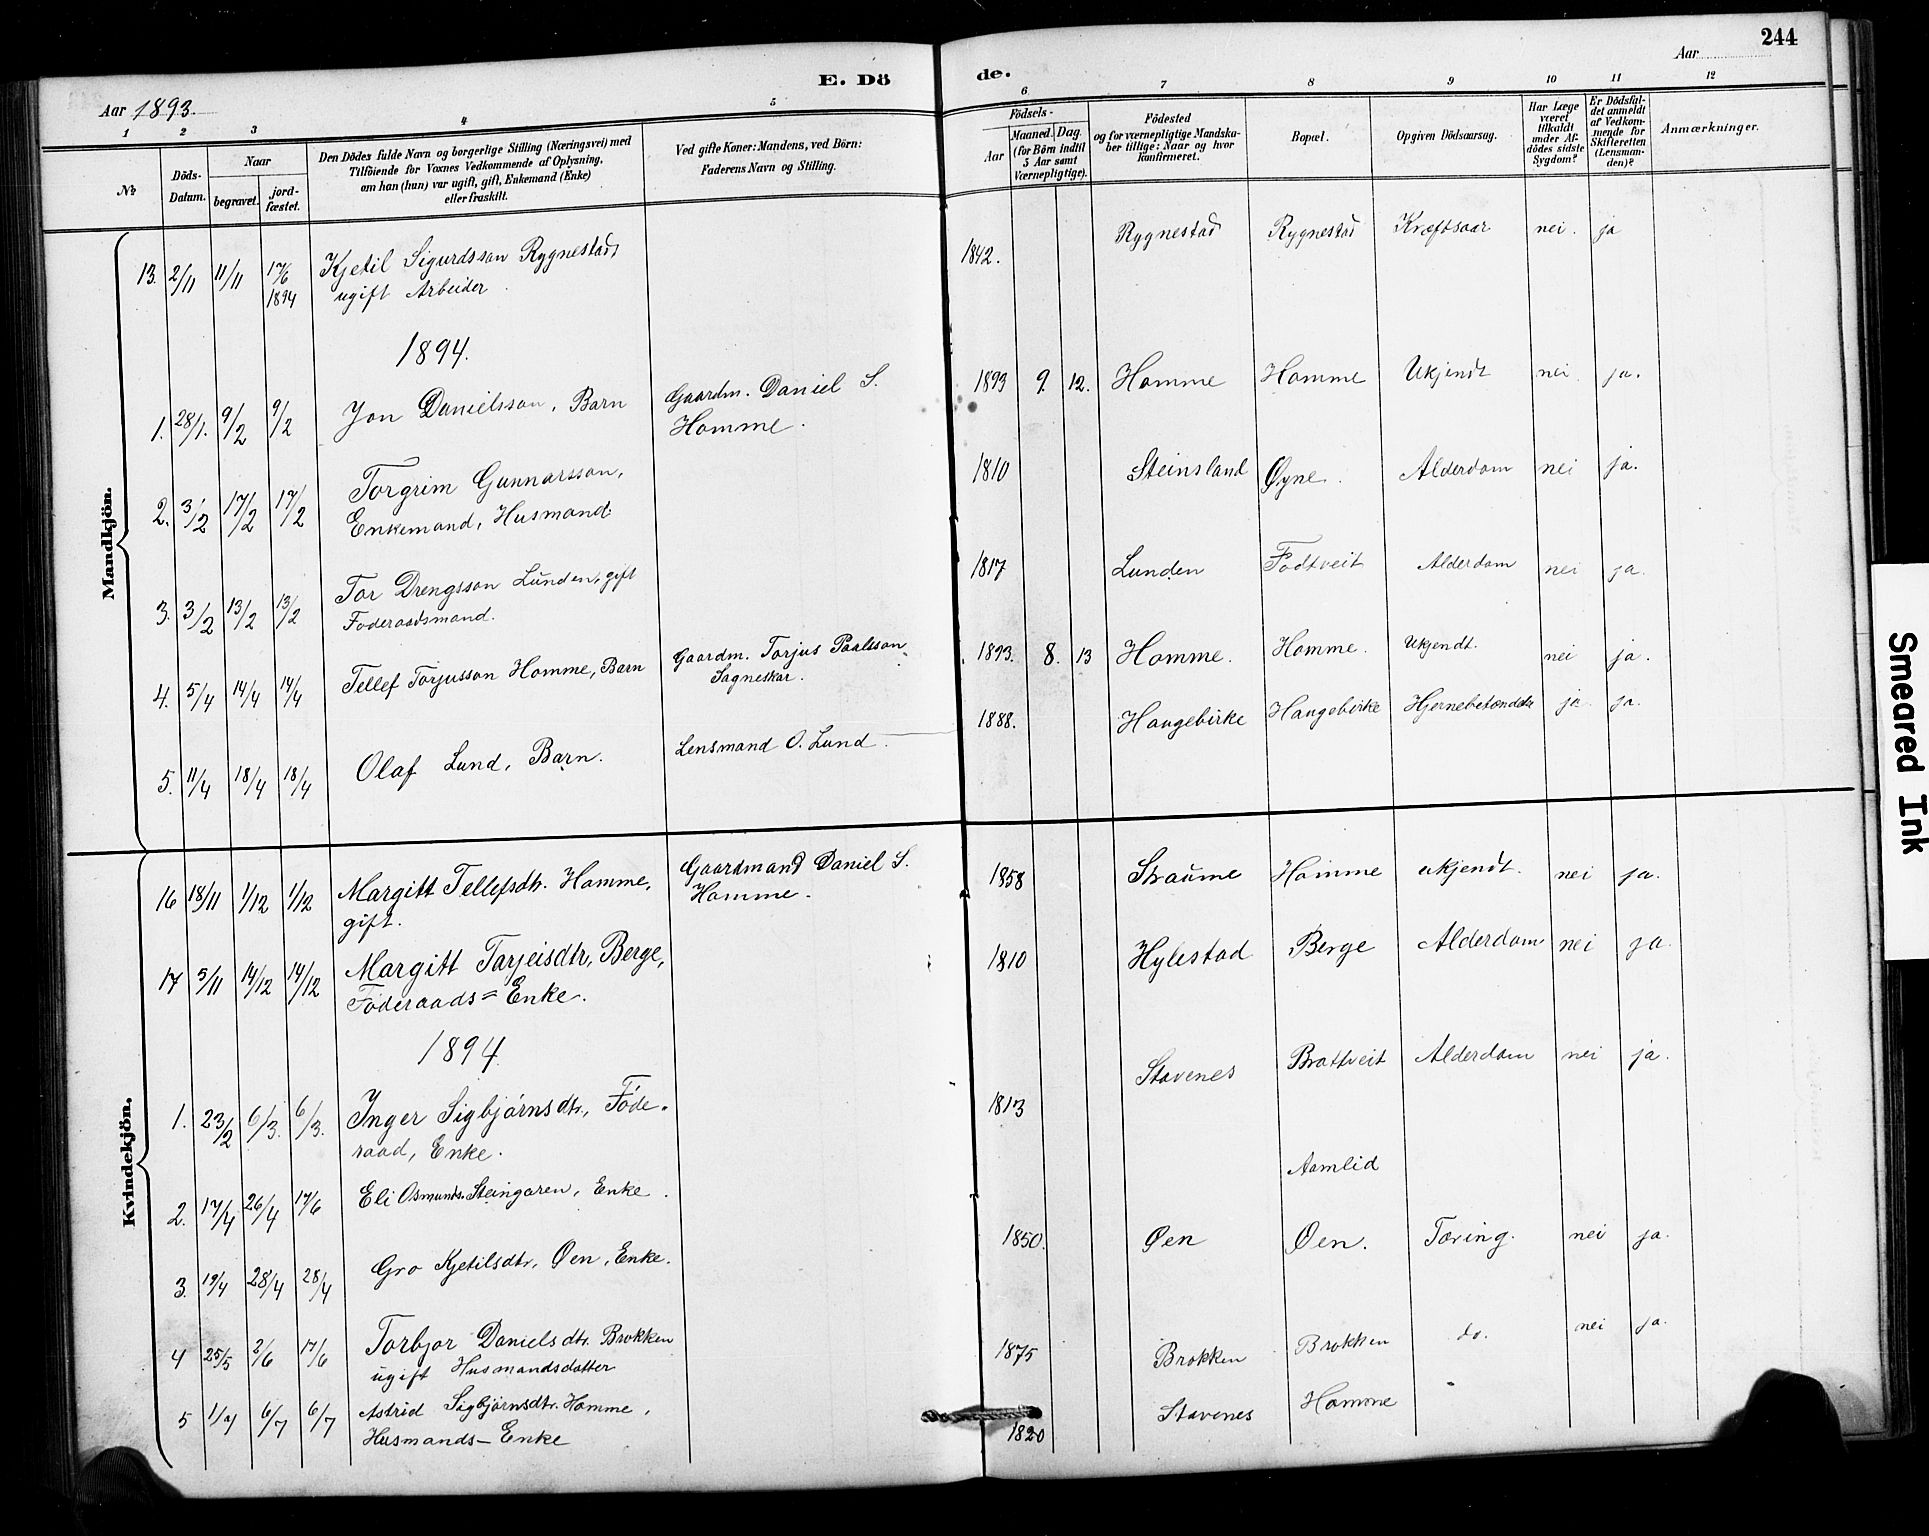 244
E. Dö de.
Aar 1893.
Aar
1 2 3 4 5 6 7 8 9 10 11 12
№
Döds-
Datum.
Naar
begravet.
jord-
fæstet.
Den Dödes fulde Navn og borgerlige Stilling (Næringsvei) med
Tilföiende for Voxnes Vedkommende af Oplysning,
om han (hun) var ugift, gift, Enkemand (Enke)
eller fraskilt.
Ved gifte Koner: Mandens, ved Börn:
Faderens Navn og Stilling.
Födsels-
Aar
Maaned. Dag.
(for Börn indtil
5 Aar samt
Værnepligtige).
Födested
og for værnepligtige Mandska-
ber tillige: Naar og hvor
konfirmeret.
Bopæl.
Opgiven Dödsaarsag.
Har Læge
været
tilkaldt
under Af-
dödes sidste
Sygdom?
Er Dödsfal-
det anmeldt
af Vedkom-
mende for
Skifteretten
(Lensman-
den)?
Anmærkninger.
Mandkjön.
13. 2/11 11/11 17/6 1894 Kjetil Sigurdsson Rygnestad, 1842. Rygnestad Rygnestad Kræftsaar nei. ja
ugift Arbeider.
1894.
1. 28/1. 9/2 9/2 Jon Danielsson, Barn Gaardm. Daniel S. 1893 9. 12. Homme Homme Ukjendt nei. ja.
Homme.
2. 3/2 17/2 17/2 Torgrim Gunnarsson, 1810 Steinsland Øyne. Alderdom nei ja.
Enkemand, Husmand.
3. 3/2 13/2 13/2 Tor Drengsson Lunden, gift 1817 Lunden Fodtveit Alderdom nei ja.
Foderaadsmand.
4. 5/4 14/4 14/4 Tellef Torjusson Homme, Barn Gaardm. Torjus Paalsson 1893. 8. 13 Homme. Homme. Ukjendt. nei ja.
Sagneskar.
5. 11/4 18/4 18/4 Olaf Lund, Barn. Lensmand O. Lund. 1888. Haugebirke Haugebirke Hjernebetændelse ja. ja.
Kvindekjön.
16 18/11 1/12 1/12 Margitt Tellefsdtr. Homme, Gaardmand Daniel S. 1858 Straume Homme ukjendt. nei ja.
gift. Homme.
17 5/11 14/12 14/12 Margitt Tarjeisdtr, Berge, 1810 Hylestad Berge Alderdom nei ja.
Föderaads=Enke.
1894
1. 23/2 6/3. 6/3. Inger Sigbjörnsdtr., Föde- 1813 Stavenes Brattveit Alderdom nei ja.
raad, Enke.
2. 17/4 26/4 17/6 Eli Osmunds. Steingaren, Enke. Aamlid
3. 19/4 28/4 28/4 Gro Kjetilsdtr, Øen, Enke. 1850. Øen Øen. Tæring. nei ja.
4 25/5 2/6 17/6 Torbjor Danielsdtr. Brokken 1875 Brokken Brokken do. nei ja.
ugift Husmandsdatter
5 6/7 6/7 Astrid Sigbjörnsdtr. Homme, 1820 Stavenes Homme
Husmands-Enke
Smeared Ink